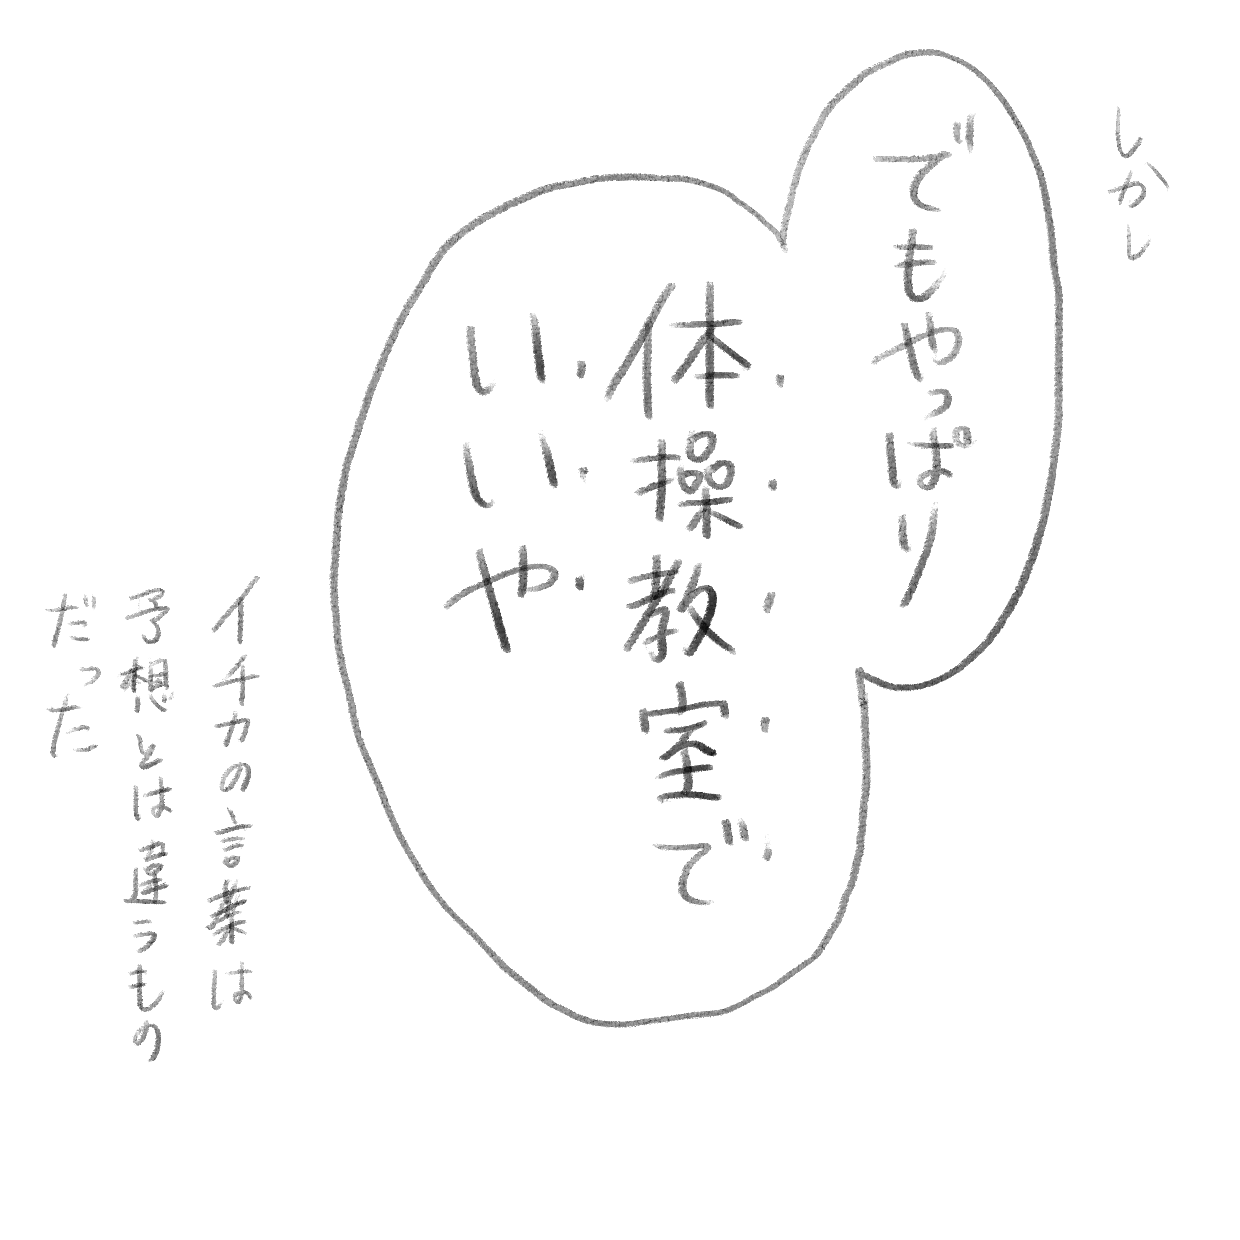 しかし
でもやっぱり
体操教室で
いいや
イチカの言葉は
予想とは違うもの
だった